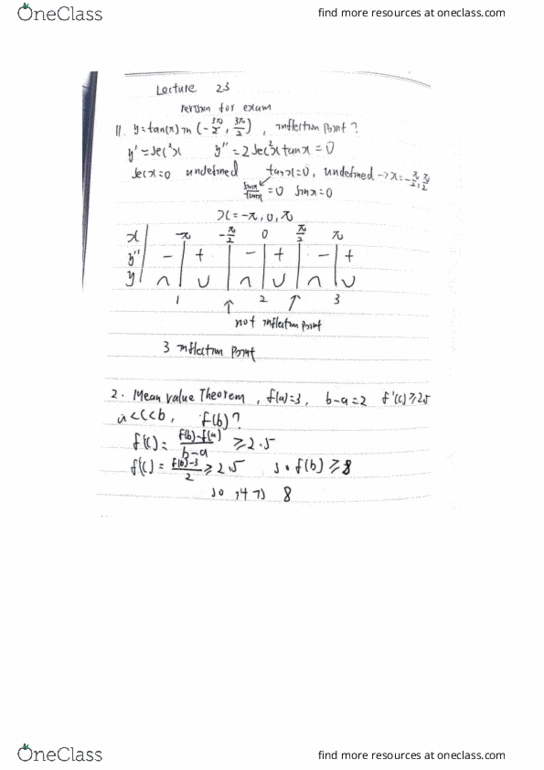 OneClass
find more resources at oneclass.com
Lecture 23
revision for exam
11. y=tan(x) in (-3π/2, 3π/2), inflection point?
y'=sec²x y"=2sec²x tanx=0
secx=0 undefined tanx=0, undefined → x=-π/2, π/2
=0 sinx=0
x=-π, 0, π
x -π -π/2 0 π/2 π
y" - + - + - +
y ∩ ∪ ∩ ∪ ∩ ∪
1 ↑ 2 ↑ 3
not inflection point
3 inflection point
2. Mean value Theorem, f(a)=3, b-a=2 f'(c)≥2.5
a<c<b, f(b)?
f'(c)= f(b)-f(a)/b-a ≥2.5
f'(c)= f(b)-3/2 ≥2.5 so f(b)≥8
so 8
OneClass
find more resources at oneclass.com